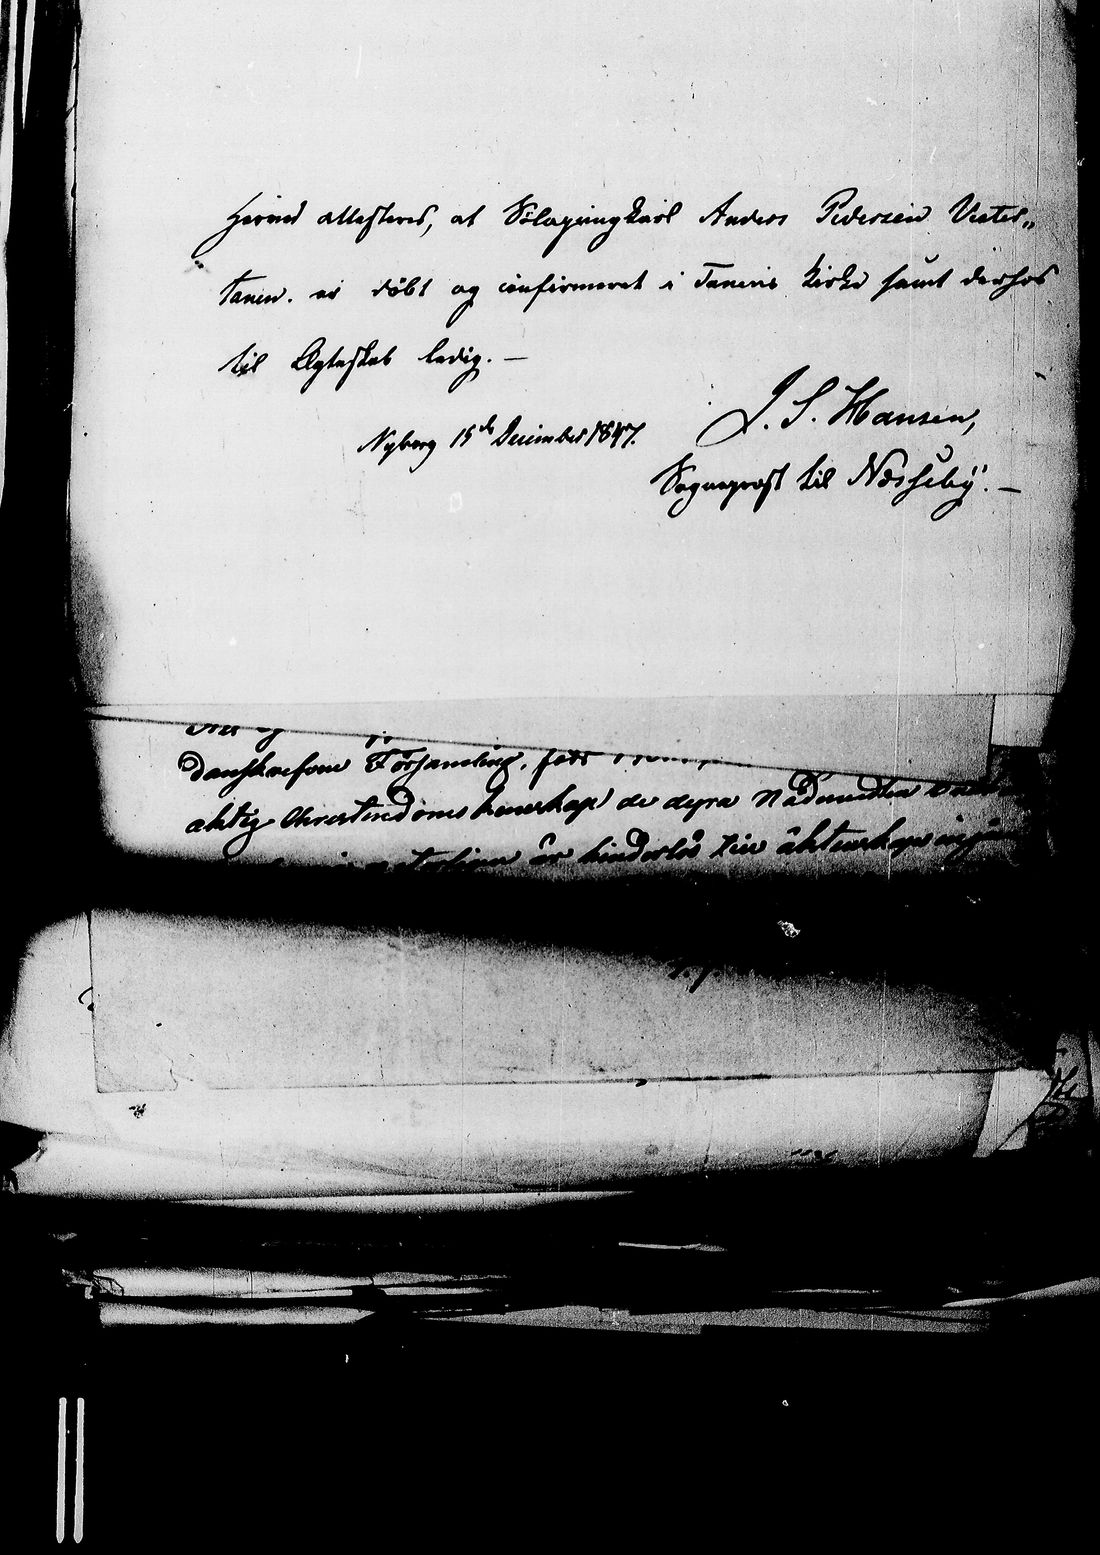 Herved attesteres, at Anders Pedersen Vester„
tanen. er döbt og confirmeret i Tanens Kirke samt derhos
til Ægteskab ledig. —
Nyborg 15de December 1847.
J. S. Hansen,
Sognepræst til Næsseby. —
Församling, född
aktig Christendoms kunskap de dyra Nådmedlen
är hinderlös till äktenskaps